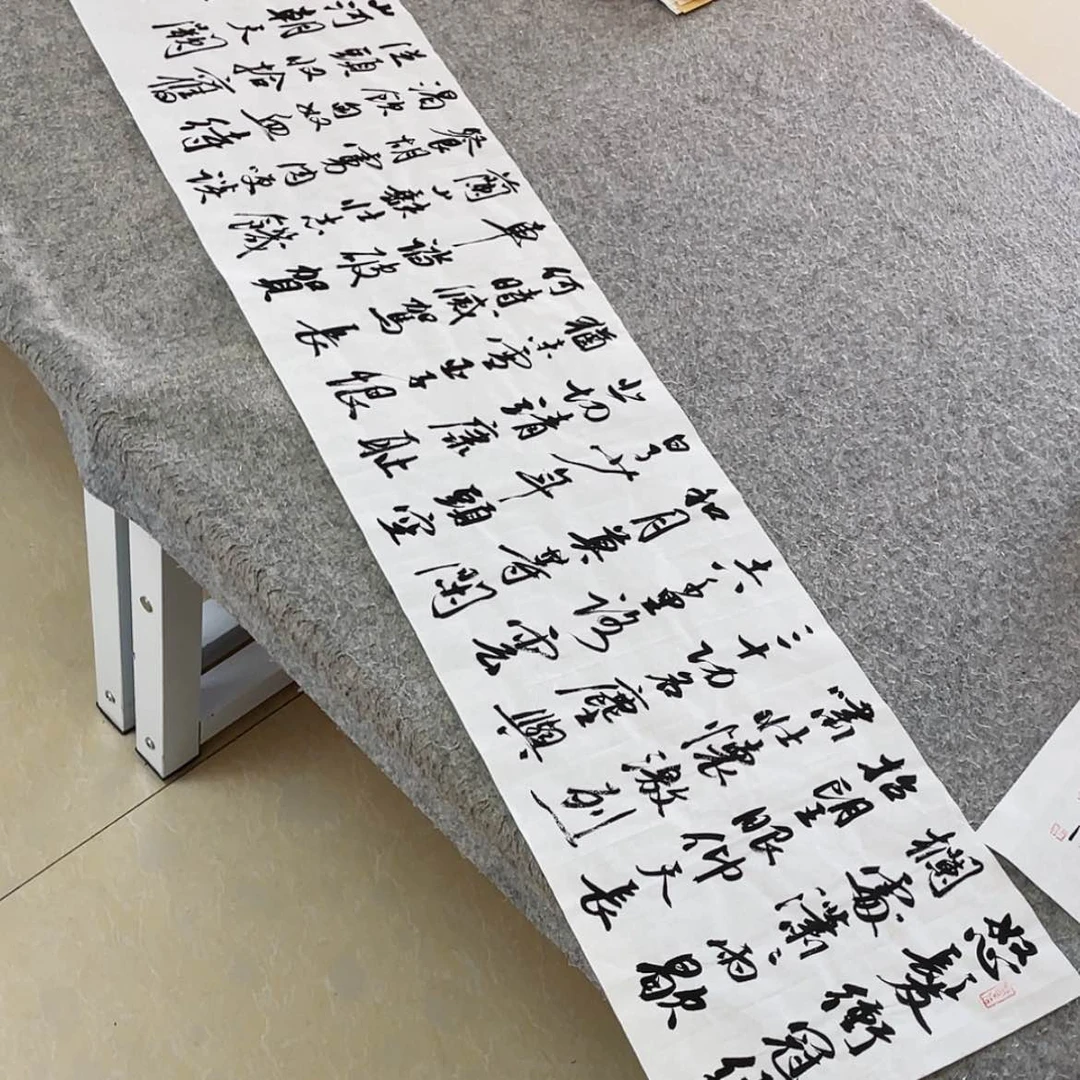 怒髮衝冠
欄處瀟〻雨歇
抬望眼仰天長
嘯壯懷激烈
三十功名塵與
土八千里路雲
和月莫等閑
白了少年頭空
悲切靖康耻
猶未雪臣子恨
何時滅駕長
車踏破賀
蘭山缺壯志饑
餐胡虜肉笑談
渴飲匈奴血待
從頭收拾舊
山河朝天闕